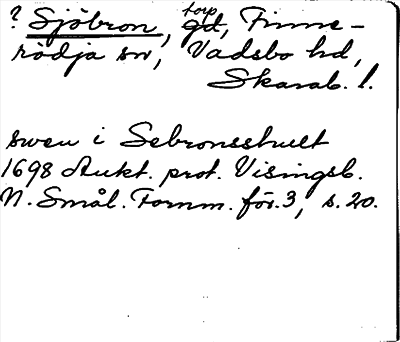 ? Sjöbron, torp gd, Finne-
rödja sn, Vadsbo hd,
Skarab. l.
swen i Sebronshuelt
1698 Aukt. prot. Visingsb.
N. Smål. Fornm. för. 3, s. 20.